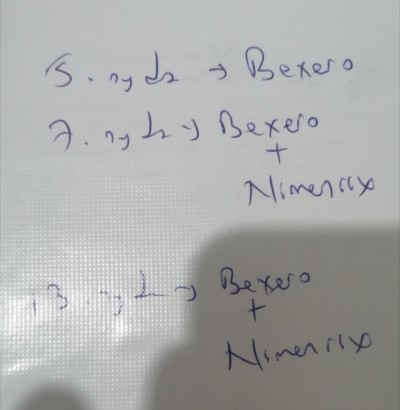 5. ayda → Bexero
7. ayda → Bexero
+
Nimenrix
13. ayda → Bexero
+
Nimenrix